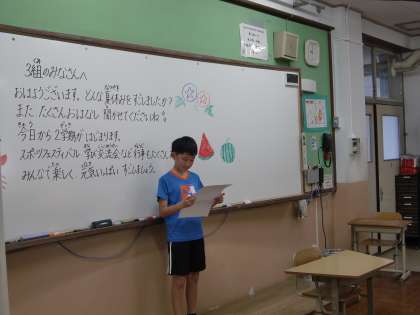 3組のみなさんへ
おはようございます。どんな夏休みをすごしましたか?
また たくさんおはなし 聞かせてくださいね
今日から 2学期が はじまります。
スポーツフェスティバル、学び交流会など 行事もたくさん
みんなで楽しく、元気いっぱい すごしましょう。